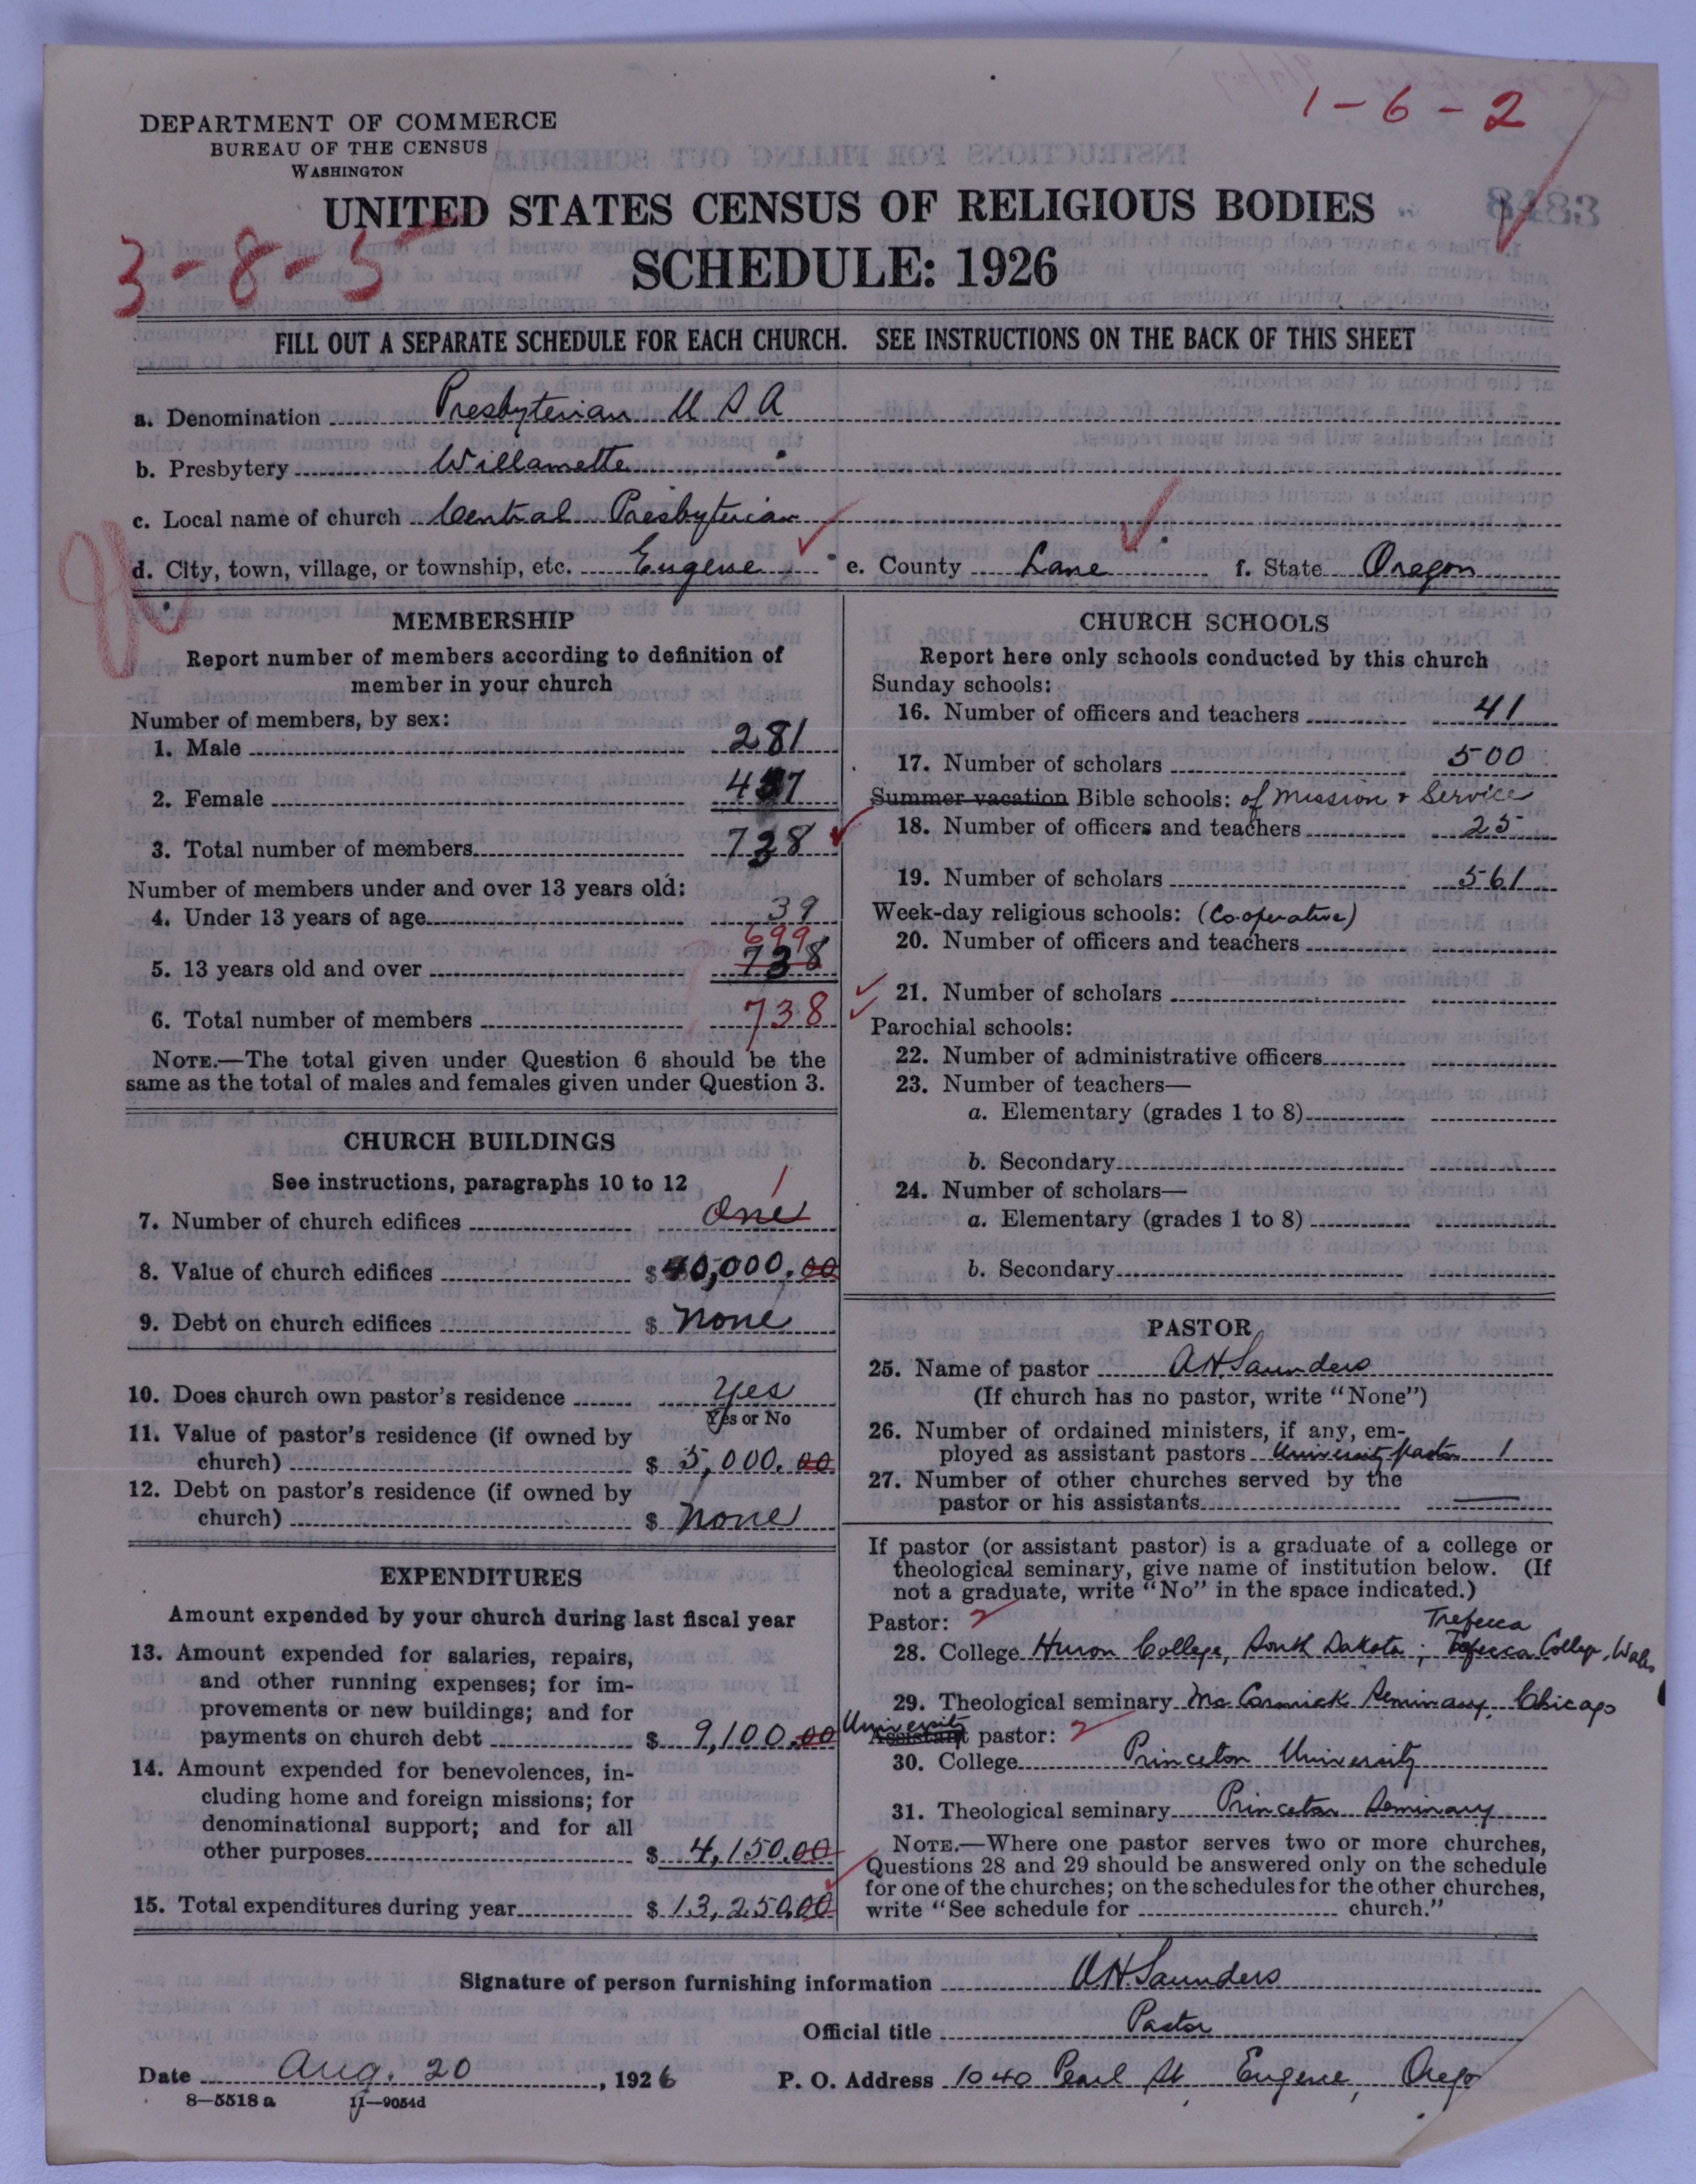 1-6-2
DEPARTMENT OF COMMERCE
BUREAU OF THE CENSUS
WASHINGTON
UNITED STATES CENSUS OF RELIGIOUS BODIES
8483
3-8-5
SCHEDULE: 1926
FILL OUT A SEPARATE SCHEDULE FOR EACH CHURCH. SEE INSTRUCTIONS ON THE BACK OF THIS SHEET
a. Denomination Presbyterian U S A
b. Presbytery Willamette
c. Local name of church Central Presbyterian
d. City, town, village, or township, etc. Eugene e. County Lane f. State Oregon
MEMBERSHIP
Report number of members according to definition of
member in your church
Number of members, by sex:
1. Male 281
2. Female 457
3. Total number of members 738
Number of members under and over 13 years old:
4. Under 13 years of age 39
699
5. 13 years old and over 738
6. Total number of members 738
NOTE.—The total given under Question 6 should be the
same as the total of males and females given under Question 3.
CHURCH BUILDINGS
See instructions, paragraphs 10 to 12
1
7. Number of church edifices One
8. Value of church edifices $ 40,000.00
9. Debt on church edifices $ None
10. Does church own pastor's residence Yes
Yes or No
11. Value of pastor's residence (if owned by
church) $ 5,000.00
12. Debt on pastor's residence (if owned by
church) $ None
EXPENDITURES
Amount expended by your church during last fiscal year
13. Amount expended for salaries, repairs,
and other running expenses; for im-
provements or new buildings; and for
payments on church debt $ 9,100.00
14. Amount expended for benevolences, in-
cluding home and foreign missions; for
denominational support; and for all
other purposes $ 4,150.00
15. Total expenditures during year $ 13,250.00
CHURCH SCHOOLS
Report here only schools conducted by this church
Sunday schools:
16. Number of officers and teachers 41
17. Number of scholars 500
Summer vacation Bible schools: of Mission & Service
18. Number of officers and teachers 25
19. Number of scholars 561
Week-day religious schools: (Co-operative)
20. Number of officers and teachers
21. Number of scholars
Parochial schools:
22. Number of administrative officers
23. Number of teachers—
a. Elementary (grades 1 to 8)
b. Secondary
24. Number of scholars—
a. Elementary (grades 1 to 8)
b. Secondary
PASTOR
25. Name of pastor A H Saunders
(If church has no pastor, write "None")
26. Number of ordained ministers, if any, em-
ployed as assistant pastors University pastor 1
27. Number of other churches served by the
pastor or his assistants —
If pastor (or assistant pastor) is a graduate of a college or
theological seminary, give name of institution below. (If
not a graduate, write "No" in the space indicated.)
Pastor: 2 Trefecca
28. College Huron College, South Dakota; Trefecca College, Wales
29. Theological seminary Mc Cormick Seminary, Chicago
University
Assistant pastor: 2
30. College Princeton University
31. Theological seminary Princeton Seminary
NOTE.—Where one pastor serves two or more churches,
Questions 28 and 29 should be answered only on the schedule
for one of the churches; on the schedules for the other churches,
write "See schedule for church."
Signature of person furnishing information A H Saunders
Official title Pastor
Date Aug. 20, 1926 P. O. Address 1040 Pearl St Eugene, Orego
8—5518 a 11—9054d